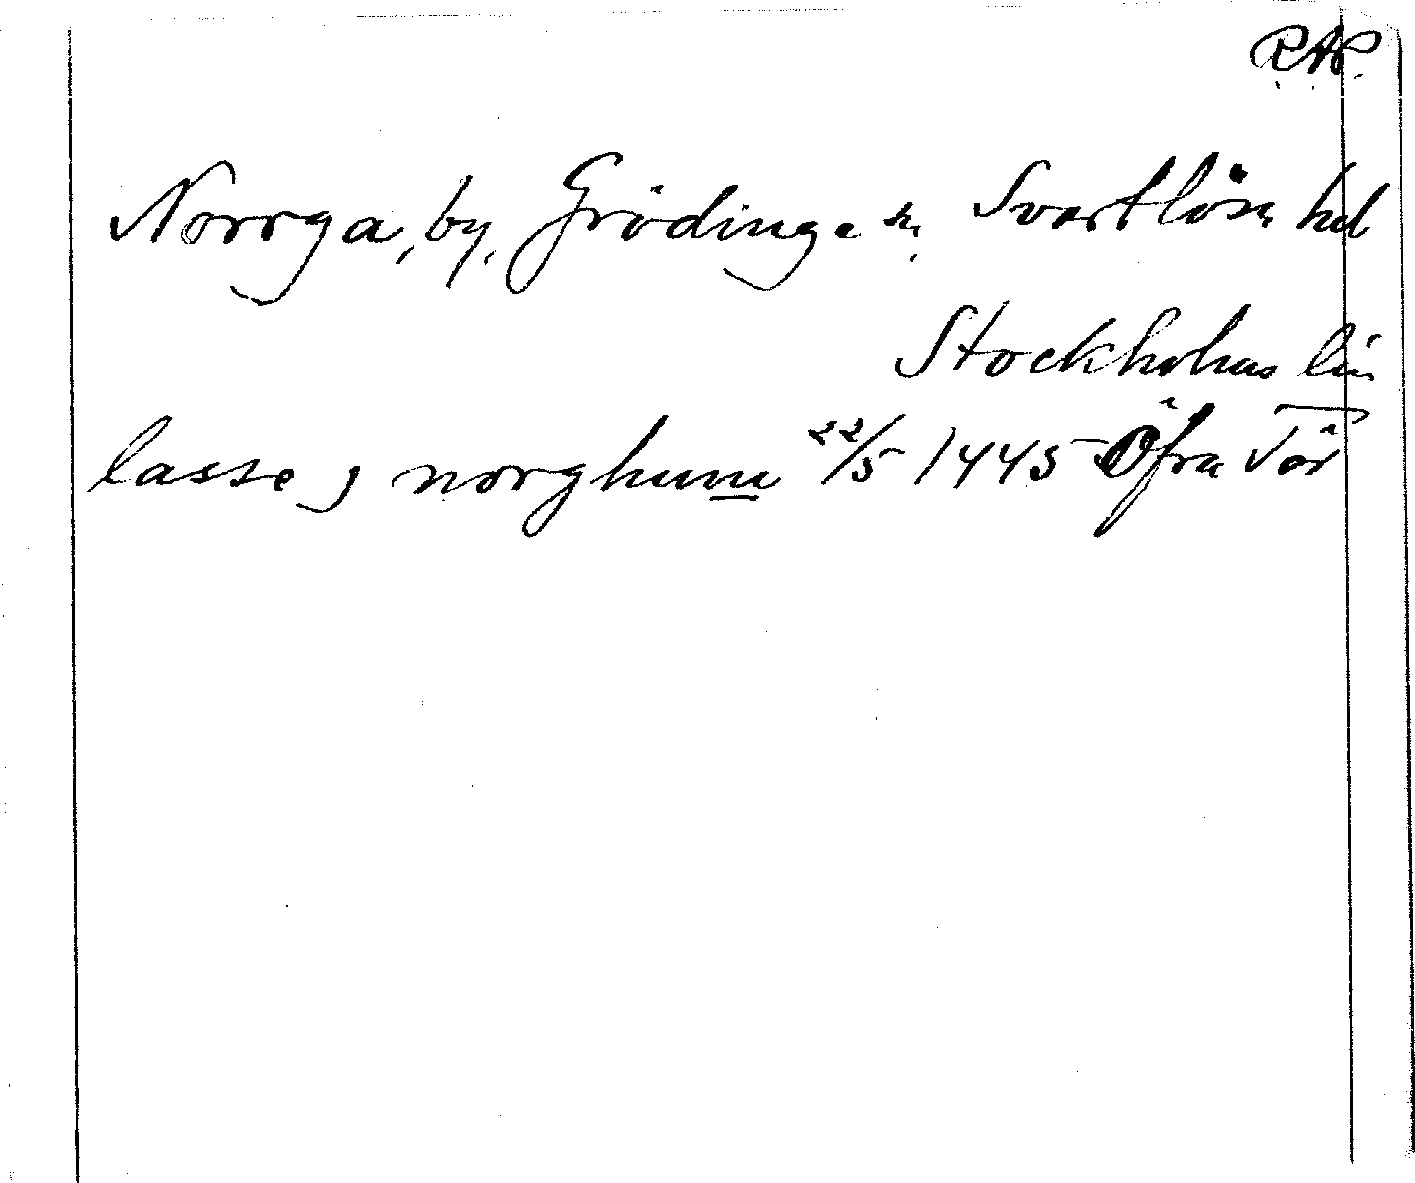 R.A.P.
Norrga, by, Grödinge sn, Svartlösa hd
Stockholms län
lasse j norghum 22/5 1445 Öfra Tör